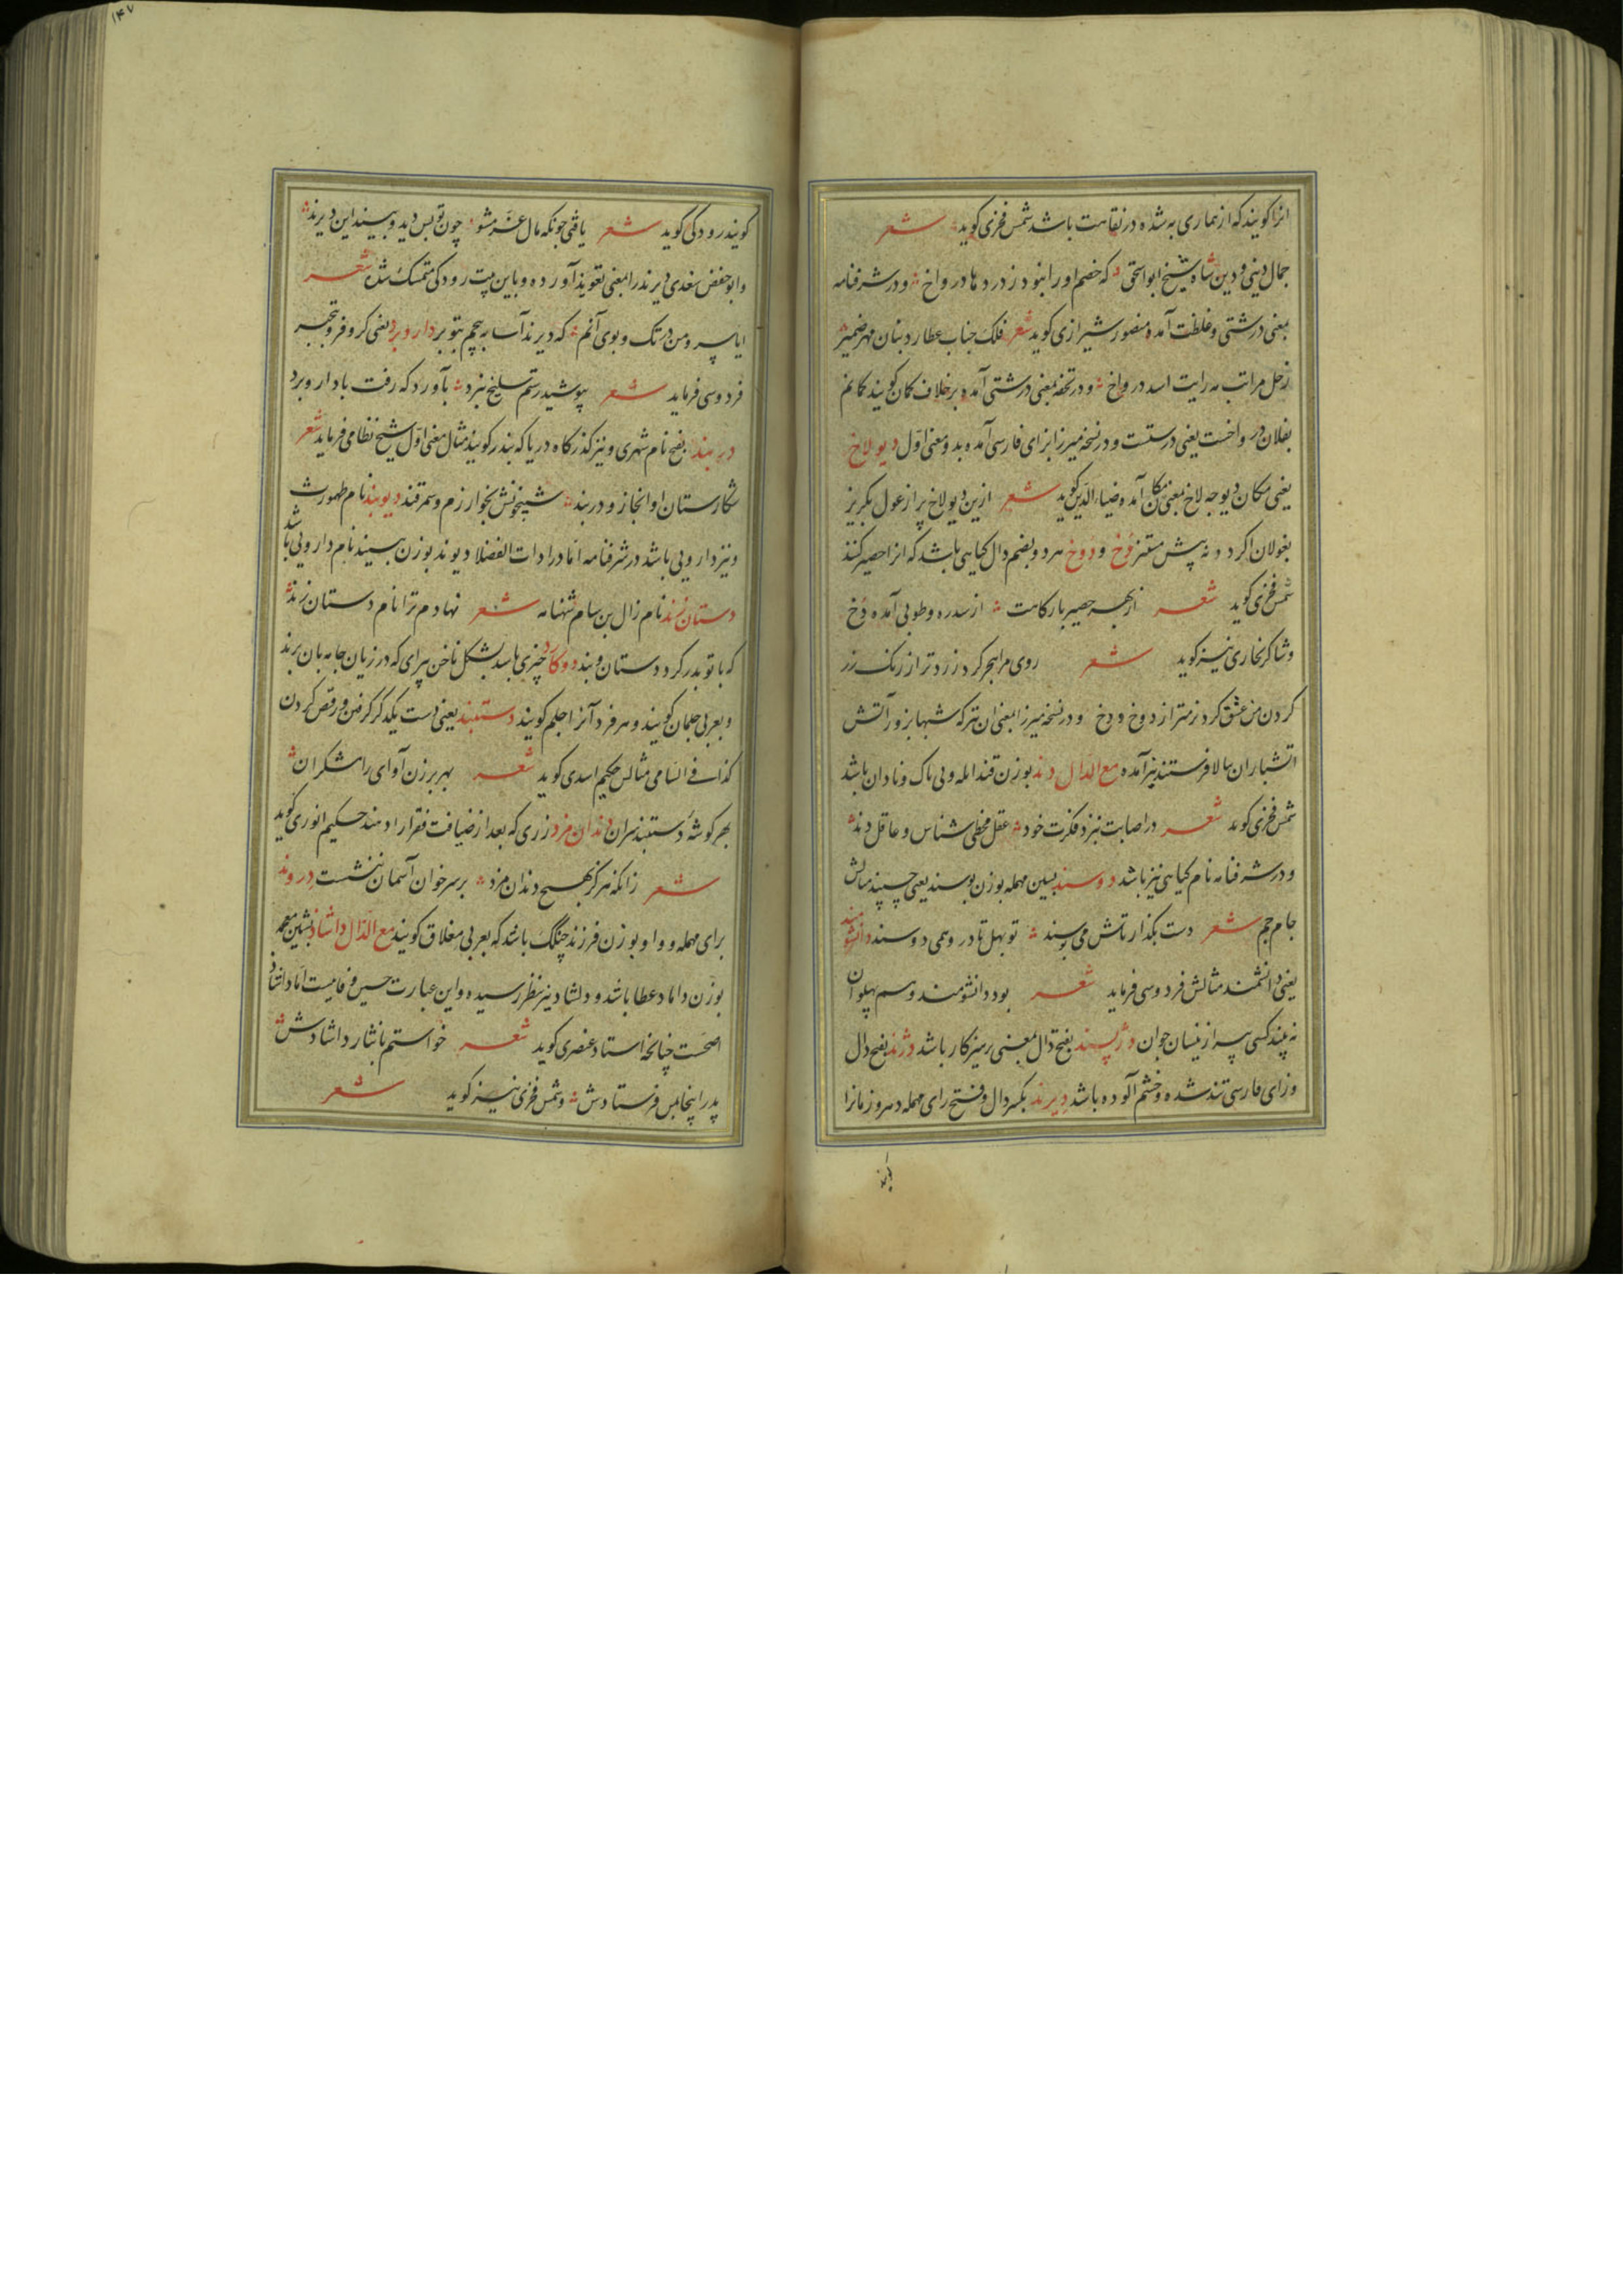 انرا کویند که از بیماری به شده در نقاهت باشد شمس فخری کوید شعر
جمال دینی و دین شاه شیخ ابو اسحق که خصم او را بنود ز درد ها در واخ و در شرفنامه
بمعنی درشتی و غلظت آمده منصور شیرازی کوید شعر فلک جناب عطارد بنان مهر ضمیر
زحل مراتب مه رایت اسد در واخ و در تحفه بمعنی درشتی آمده برخلاف کمان کویند کمانم
بفلان در واخست یعنی درستست و در نسخه میرزا بزای فارسی آمده بدو معنی اول دیولاخ
یعنی مکان دیو چه لاخ بمعنی مکان آمده ضیاء الدین کوید شعر ازین دیولاخ پر از غول بکریز
بغولان اکرد و نه پیش مستیز دخ و دوخ هر دو بضم دال کیاهی باشد که انرا حصیر کنند
شمس فخری کوید شعر از بهر حصیر بارکاهت از سدره و طوبی آمده دخ
و شاکر بخاری نیز کوید شعر روی مرا هجر کرد زرد تر از رنک زر
کردن من عشق کرد نرمتر از دوخ و دخ و در نسخه میرزا بمعنی ان تیر که شبها بزور آتش
اتشباران ببالا فرستند نیز آمده مع الدال دند بوزن قند ابله و بی باک و نادان باشد
شمس فخری کوید شعر در اصابت بنزد فکرت خود عقل مخطی شناس و عاقل دند
و در شرفنامه نام کیاهی نیز باشد دوسند بسین مهمله بوزن بوسند یعنی چسپند مثالش
جام جم شعر دست بکذار تاش می بوسند تو بهل تا در و همی دوسند دانشومند
یعنی دانشمند مثالش فردوسی فرماید شعر بود دانشومند و هم پهلوان
نه بیند کسی پیر از نیسان جوان دژپسند بفتح دال بمعنی پرهیزکار باشد دژند بفتح دال
و زای فارسی تند شده و خشم آلوده باشد دیرند بکسر دال و فتح رای مهمله دهر و زمانرا
۱۴۷
کویند رودکی کوید شعر یافتی چونکه مال غره مشو چون تو بس دید و بیند این دیرند
و ابو حفض سغدی دیرند را بمعنی تعویذ آورده و باین بیت رودکی متمسک شده شعر
ایا سرو من در تک و بوی آنم که دیرند آسا بپیچم بتو بر دار و برد یعنی کر و فر و تجبر
فردوسی فرماید شعر بپوشید رستم سلیح نبرد بآورد که رفت با دار و برد
دربند بفتح نام شهری و نیز کذرکاه دریا که بندر کویند مثال معنی اول شیخ نظامی فرماید شعر
شکارستان او انجاز و دربند شبیخونش بخوارزم و سمرقند دیوبند نام طهمورث
و نیز دارویی باشد در شرفنامه اما در ادات الفضلا دیوند بوزن بسیند نام دارویی باشد
دستان زند نام زال بن سام شهنامه شعر نهادم ترا نام دستان زند
که با تو پدر کرد دستان و بند دوکارد چیزی باشد بشکل ناخن پیرای که درزیان جامه بان برند
و بعربی جلمان کویند و هر فرد آنرا جلم کویند دستبند یعنی دست یکدکر کرفتن و رقص کردن
کذا فی السامی مثالش حکیم اسدی کوید شعر بهر برزن آوای رامشکران
بهر کوشه دستبند سران دندان مزد زری که بعد از ضیافت فقرا را دهند حکیم انوری کوید
شعر زانکه هرکز بهیچ دندان مزد بر سر خوان آسمان ننشست دروند
برای مهمله و واو بوزن فرزند چنکک باشد که بعربی معلاق کویند مع الذال داشاذ بشین معجمه
بوزن داماد عطا باشد و دلشاد نیز بنظر رسیده و این عبارت حسین وفاییست اما داشاذ
اصحست چنانچه استاد عنصری کوید شعر خواستم با نثار داشادش
پدر اینجا بس فرستادش و شمس فخری نیز کوید شعر